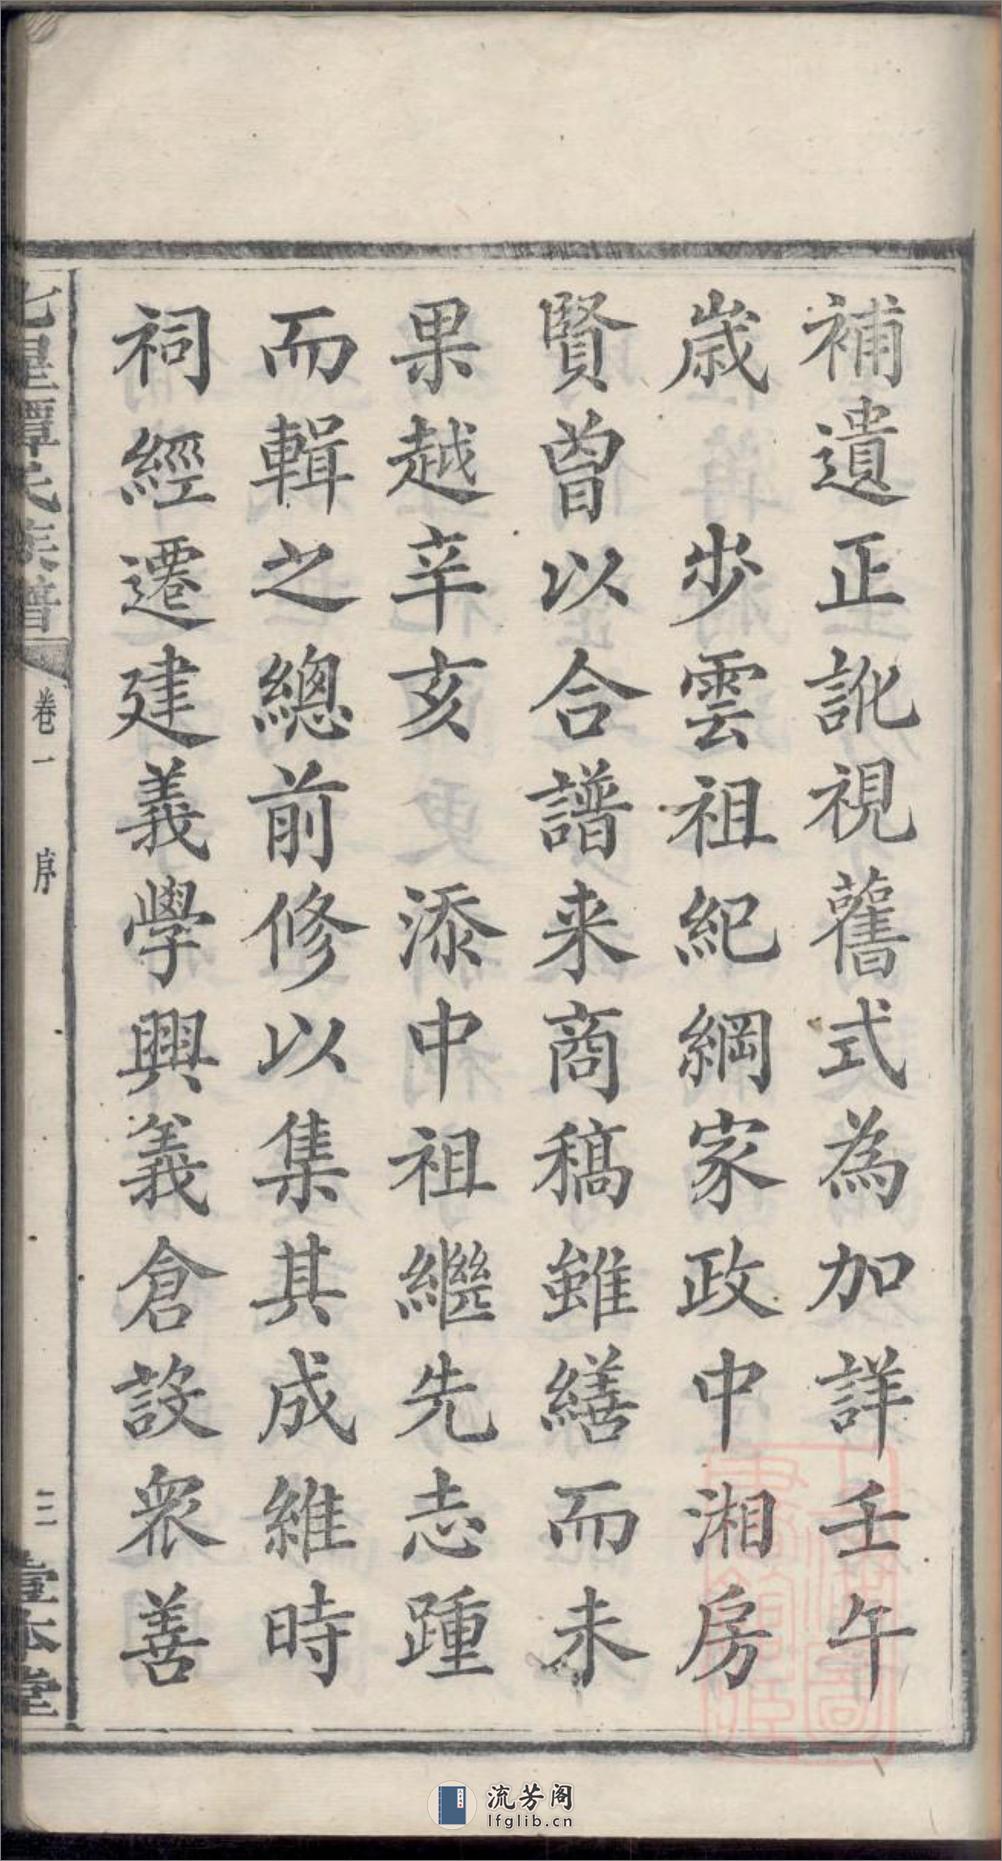 補遺正訛視舊式為加詳壬午
歳　步雲祖紀綱家政中湘房
賢曾以合譜来商稿雖繕而未
果越辛亥　添中祖繼先志踵
而輯之總前修以集其成維時
祠經遷建義學興義倉設衆善
七星譚氏族譜
卷一
序
三
壹本堂
流芳阁
lfglib.cn